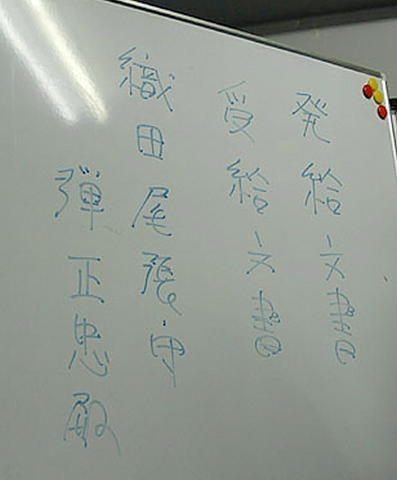 発給文書
受給文書
織田尾張守
弾正忠殿